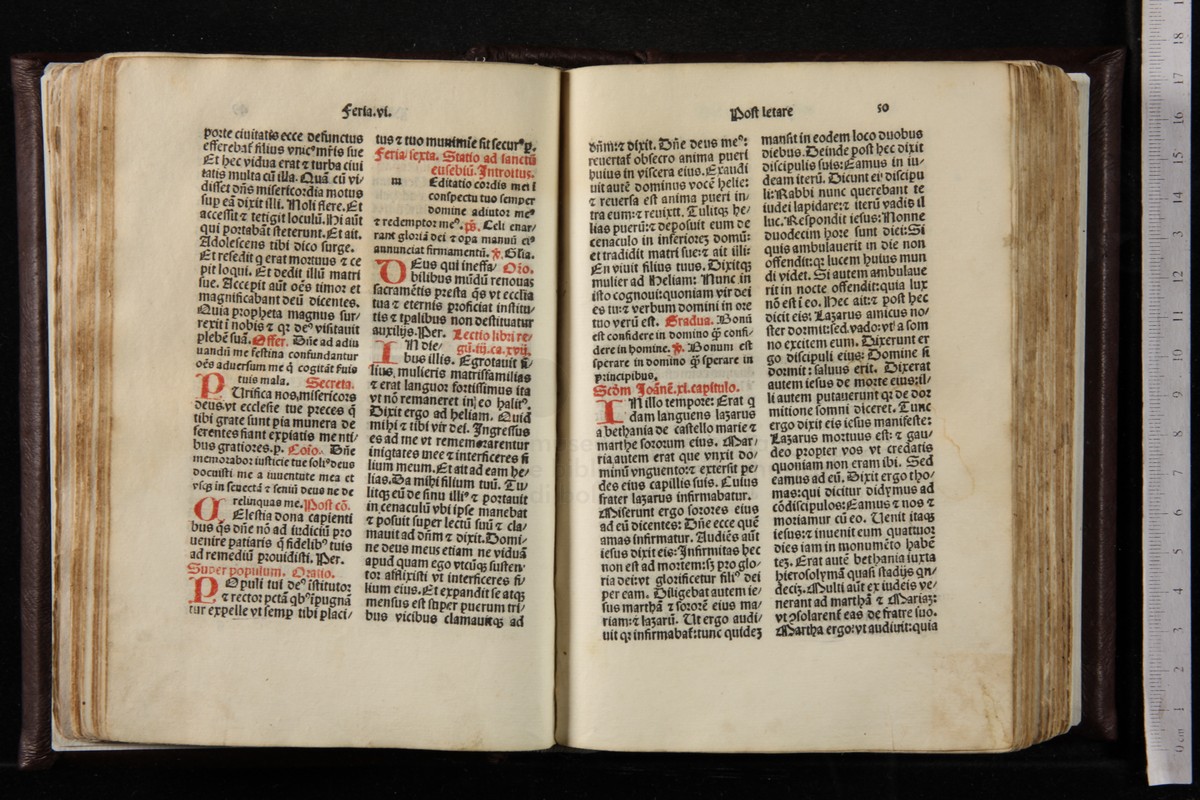 Feria.vi.
porte ciuitatis ecce defunctus
efferebat᷑ filius vnicꝰ mr̄is sue
Et hec vidua erat ⁊ turba ciui
tatis multa cū illa. Quā cū vi⸗
disset dn̄s misericordia motus
sup eā dixit illi. Noli flere. Et
accessit ⁊ tetigit loculū. Hi aūt
qui portabāt steterunt. Et ait.
Adolescens tibi dico surge.
Et resedit q erat mortuus ⁊ ce
pit loqui. Et dedit illū matri
sue. Accepit aūt oēs timor et
magnificabant deū dicentes.
Quia propheta magnus sur⸗
rexit in nobis ⁊ qꝛ deꝰ visitauit
plebē suā. Offer. Dn̄e ad adiu
uandū me festina confundantur
oēs aduersum me q̄ cogitāt ẜuis
tuis mala. Secreta.
PUrifica nos misericors
deus: vt ecclesie tue preces q̄
tibi grate sunt pia munera de
ferentes fiant expiatis menti⸗
bus gratiores. p. Cōio. Dn̄e
memorabor iusticie tue soliꝰ deus
docuisti me a iuuentute mea et
vsqꝫ in senectā ⁊ seniū deus ne de
relinquas me. Post cō.
CElestia dona capienti
bus q̄s dn̄e nō ad iudiciū pro
uenire patiaris q̄ fidelibꝰ tuis
ad remediū prouidisti. Per.
Super populum. Oratio.
POpuli tui deꝰ īstitutor
⁊ rector pctā qbꝰ īpugnā
tur expelle vt semp tibi placi⸗
tus ⁊ tuo munimīe sit securꝰ. p.
Feria sexta. Statio ad sanctū
eusebiū. Introitus.
m Editatio cordis mei ī
conspectu tuo semper
domine adiutor meꝰ
⁊ redemptor meꝰ. ps̄. Celi enar⸗
rant gloriā dei ⁊ opa manuū eiꝰ
annunciat firmamentū. ℣. Glia.
DEus qui ineffa⸗ Oro.
bilibus mūdū renouas
sacramētis presta q̄s vt ecclia
tua ⁊ eternis proficiat institu⸗
tis ⁊ tpalibus non destituatur
auxilijs. Per. Lectio libri re⸗
gū. iij. ca. xvij.
IN die⸗
bus illis. Egrotauit fi⸗
lius mulieris matrisfamilias
⁊ erat languor fortissimus ita
vt nō remaneret in eo halitꝰ.
Dixit ergo ad heliam. Quid
mihi ⁊ tibi vir dei. Ingressus
es ad me vt rememorarentur
iniqtates mee ⁊ interficeres fi
lium meum. Et ait ad eam he⸗
lias. Da mihi filium tuū. Tu⸗
litqꝫ eū de sinu illiꝰ ⁊ portauit
in cenaculū vbi ipse manebat
⁊ posuit super lectū suū ⁊ cla⸗
mauit ad dn̄m ⁊ dixit. Domi⸗
ne deus meus etiam ne viduā
apud quam ego vtcūqꝫ susten⸗
tor afflixisti vt interficeres fi⸗
lium eius. Et expandit se atqꝫ
mensus est super puerum tri⸗
bus vicibus clamauitqꝫ ad
Post letare 50
dn̄m: ⁊ dixit. Dn̄e deus meꝰ:
reuertat᷑ obsecro anima pueri
huius in viscera eius. Exaudi
uit autē dominus vocē helie:
⁊ reuersa est anima pueri in⸗
tra eum: ⁊ reuixit. Tulitqꝫ he⸗
lias puerū: ⁊ deposuit eum de
cenaculo in inferiorē domū:
et tradidit matri sue: ⁊ ait illi:
En viuit filius tuus. Dixitqꝫ
mulier ad Heliam: Nunc in
isto cognoui: quoniam vir dei
es tu: ⁊ verbum domini in ore
tuo verū est. Gradua. Bonū
est confidere in domino q̄ȝ confi⸗
dere in homine. ℣. Bonum est
sperare in domino q̄ȝ sperare in
principibus.
Scd̄m Joānē. xi. capitulo.
IN illo tempore: Erat q
dam languens lazarus
a bethania de castello marie ⁊
marthe sororum eius. Mar⸗
ria autem erat que vnxit do⸗
minū vnguento: ⁊ extersit pe⸗
des eius capillis suis. Cuius
frater lazarus infirmabatur.
Miserunt ergo sorores eius
ad eū dicentes: Dn̄e ecce quē
amas infirmatur. Audiēs aūt
iesus dixit eis: Infirmitas hec
non est ad mortem: sꝫ pro glo⸗
ria dei: vt glorificetur filiꝰ dei
per eam. Diligebat autem ie⸗
sus marthā ⁊ sororē eius ma⸗
riam: ⁊ lazarū. Ut ergo audi⸗
uit qꝛ infirmabat᷑: tunc quidē
mansit in eodem loco duobus
diebus. Deinde post hec dixit
discipulis suis: Eamus in iu⸗
deam iterū. Dicunt ei discipu
li: Rabbi nunc querebant te
iudei lapidare: ⁊ iterū vadis il
luc. Respondit iesus: Nonne
duodecim hore sunt diei: Si
quis ambulauerit in die non
offendit: qꝛ lucem huius mun
di videt. Si autem ambulaue
rit in nocte offendit: quia lux
nō est ī eo. Hec ait: ⁊ post hec
dicit eis: Lazarus amicus no⸗
ster dormit: sed vado: vt a som
no excitem eum. Dixerunt er
go discipuli eius: Domine si
dormit: saluus erit. Dixerat
autem iesus de morte eius: il⸗
li autem putauerunt qꝛ de dor
mitione somni diceret. Tunc
ergo dixit eis iesus manifeste:
Lazarus mortuus est: ⁊ gau⸗
deo propter vos vt credatis
quoniam non eram ibi. Sed
eamus ad eū. Dixit ergo tho⸗
mas: qui dicitur didymus ad
cōdiscipulos: Eamus ⁊ nos ⁊
moriamur cū eo. Uenit itaqꝫ
iesus: ⁊ inuenit eum quatuor
dies iam in monumēto habē
teꝫ. Erat autē bethania iuxta
hierosolymā quasi stadijs qn̄⸗
deciꝫ. Multi aūt ex iudeis ve⸗
nerant ad marthā ⁊ Mariaꝫ:
vt ꝯsolarent᷑ eas de fratre suo.
Martha ergo: vt audiuit: quia